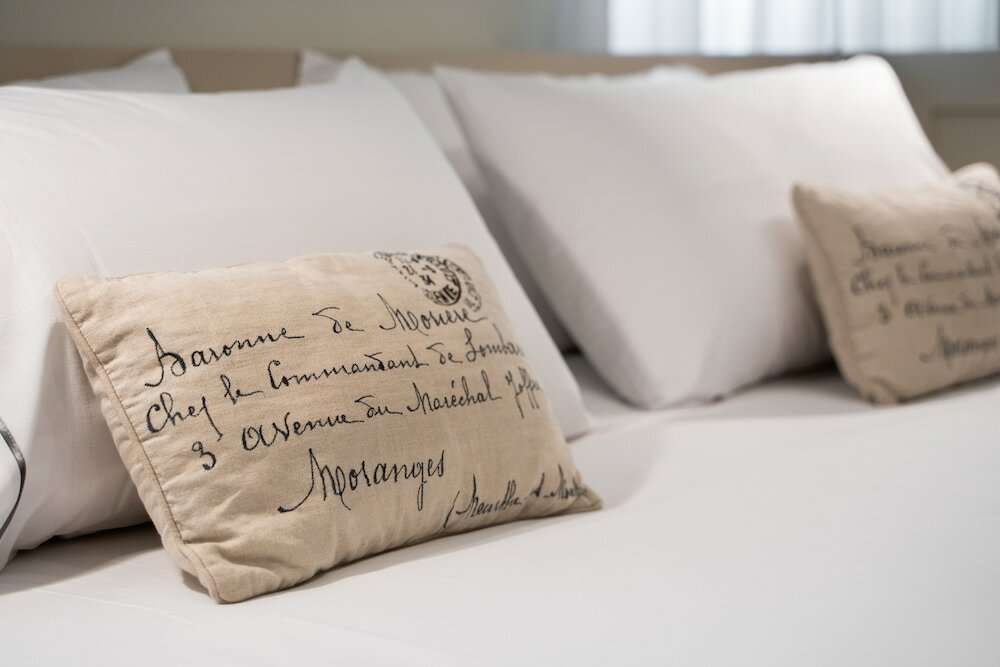 Baronne de Moriere
Chez le Commandant de Lomba
3 Avenue du Maréchal Joffre
Moranges
Baronne de
Chez le Commandant
3 Avenue du
Moranges